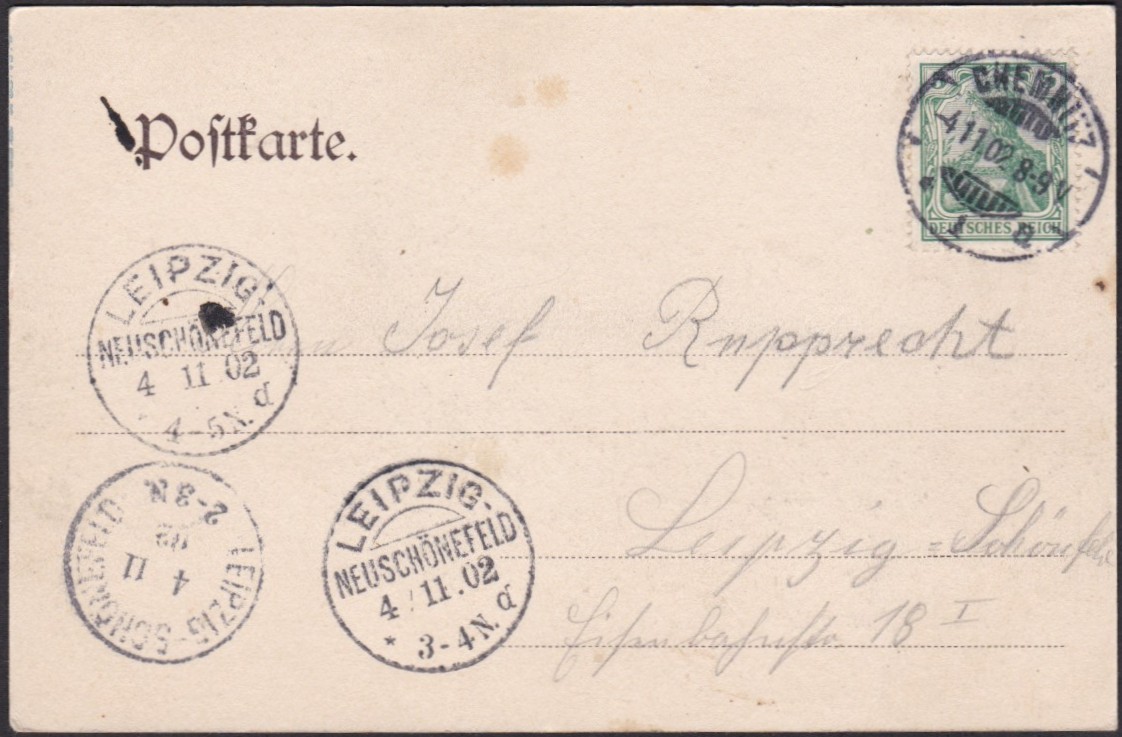 Postkarte.
CHEMNITZ
-4.11.02 8-9 V
1
DEUTSCHES REICH
LEIPZIG-
NEUSCHÖNEFELD
4 11 02
4-5 N. d
Josef Rupprecht
LEIPZIG-SCHÖNEFELD
2-3 N.
4 11
02
LEIPZIG-
NEUSCHÖNEFELD
4 11.02
* 3-4 N. d
Leipzig=Schönefeld
Eisenbahnstr 18 I